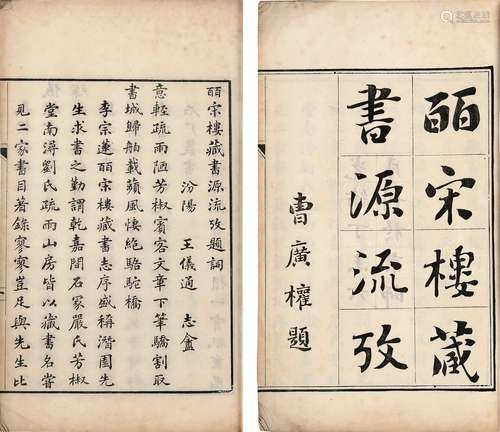 皕宋樓藏
書源流攷
曹廣權題
皕宋樓藏書源流攷題詞
汾陽 王儀通 志盦
意輕疏雨陋芳椒賓客文章下筆驕割取
書城歸舶載蘋風悽絶駱駝橋
李宗蓮皕宋樓藏書志序盛稱潛園先
生求書之勤謂乾嘉間石冢嚴氏芳椒
堂南潯劉氏疏雨山房皆以藏書名嘗
見二家書目著錄寥寥豈足與先生比